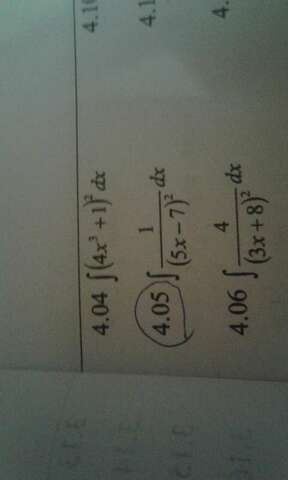 4.04 ∫(4x³ + 1)² dx
4.05 ∫ 1/(5x − 7)² dx
4.06 ∫ 4/(3x + 8)² dx
4.10
4.1
4.